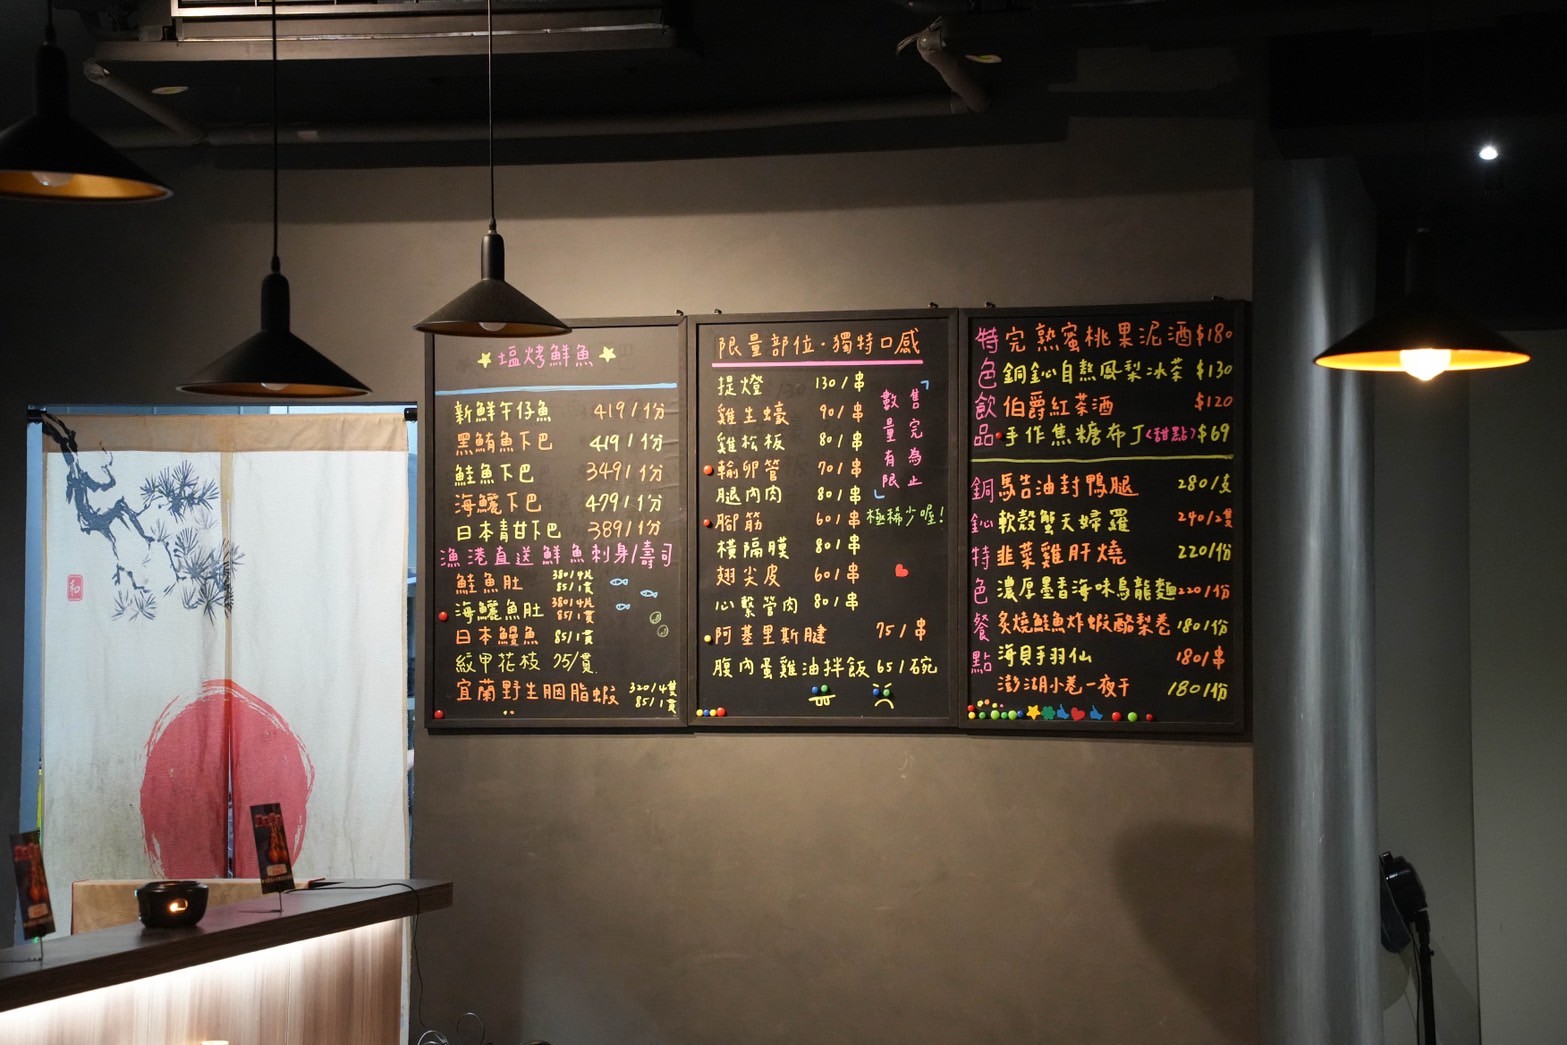 塩烤鮮魚
新鮮午仔魚 419/份
黑鮪魚下巴 419/份
鮭魚下巴 349/份
海鱺下巴 479/份
日本青甘下巴 389/份
漁港直送鮮魚刺身/壽司
鮭魚肚 380/4片 85/1貫
海鱺魚肚 380/4片 85/1貫
日本鰻魚 85/1貫
紋甲花枝 75/貫
宜蘭野生胭脂蝦 320/4隻 85/1貫
限量部位·獨特口感
提燈 130/串
雞生蠔 90/串
雞松板 80/串
輸卵管 70/串
腿內肉 80/串
腳筋 60/串
橫隔膜 80/串
翅尖皮 60/串
心繫管肉 80/串
阿基里斯腱 75/串
腹肉蛋雞油拌飯 65/碗
數量有限
售完為止
極稀少喔!
特色飲品
完熟蜜桃果泥酒 $180
銅鈊自熬鳳梨冰茶 $130
伯爵紅茶酒 $120
手作焦糖布丁(甜點) $69
銅鈊特色餐點
馬告油封鴨腿 280/支
軟殼蟹天婦羅 240/2隻
韭菜雞肝燒 220/份
濃厚墨香海味烏龍麵 220/份
炙燒鮭魚炸蝦酪梨卷 180/份
海貝手羽仙 180/串
澎湖小卷一夜干 180/份
和